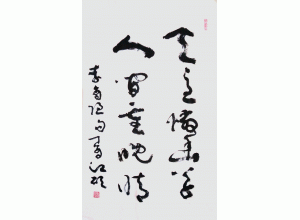 天意憐幽草
人间重晚晴
李商隐句